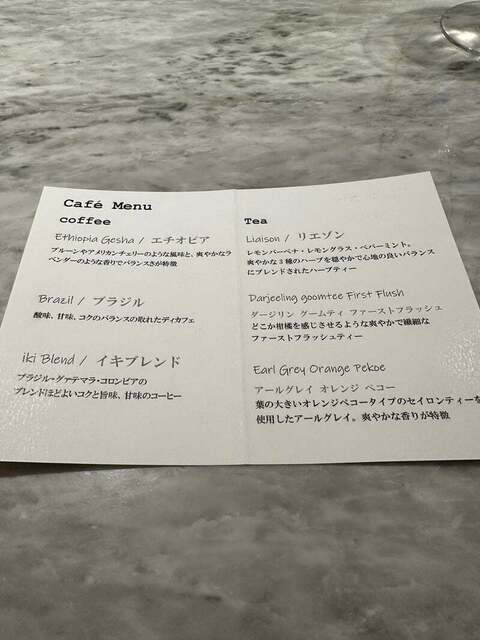 Café Menu
coffee
Ethiopia Gesha / エチオピア
プルーンやアメリカンチェリーのような風味と、爽やかなラ
ベンダーのような香りでバランスさが特徴
Brazil / ブラジル
酸味、甘味、コクのバランスの取れたディカフェ
iki Blend / イキブレンド
ブラジル・グァテマラ・コロンビアの
ブレンドほどよいコクと旨味、甘味のコーヒー
Tea
Liaison / リエゾン
レモンバーベナ・レモングラス・ペパーミント。
爽やかな3種のハーブを穏やかで心地の良いバランス
にブレンドされたハーブティー
Darjeeling goomtee First Flush
ダージリン グームティ ファーストフラッシュ
どこか柑橘を感じさせるような爽やかで繊細な
ファーストフラッシュティー
Earl Grey Orange Pekoe
アールグレイ オレンジ ペコー
葉の大きいオレンジペコータイプのセイロンティーを
使用したアールグレイ。爽やかな香りが特徴